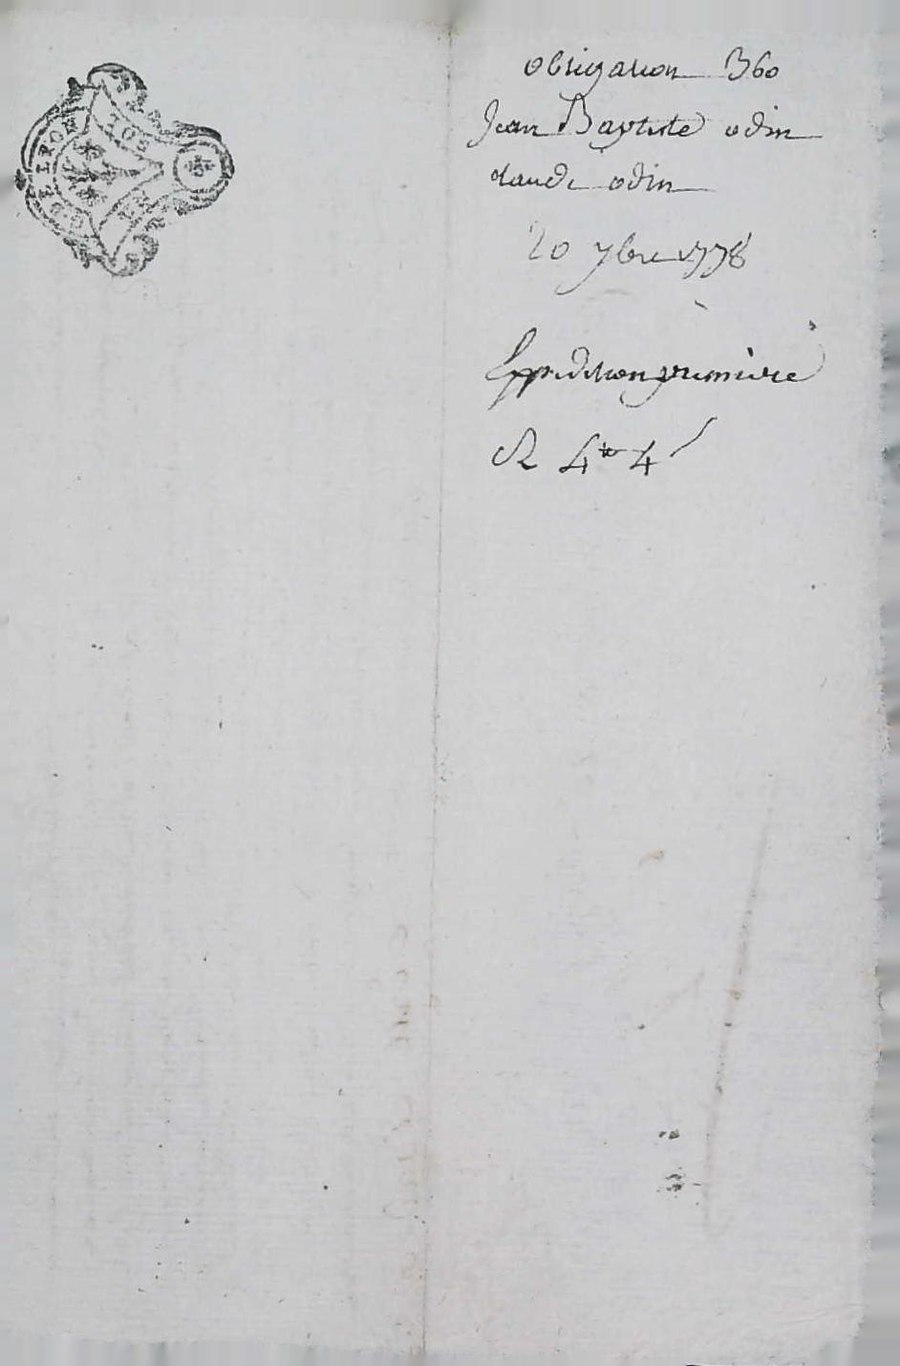 G DE LYON
obligation 360
Jean Baptiste odin
claude odin
20 7bre 1778
Expedition premiere
R 4# 4s